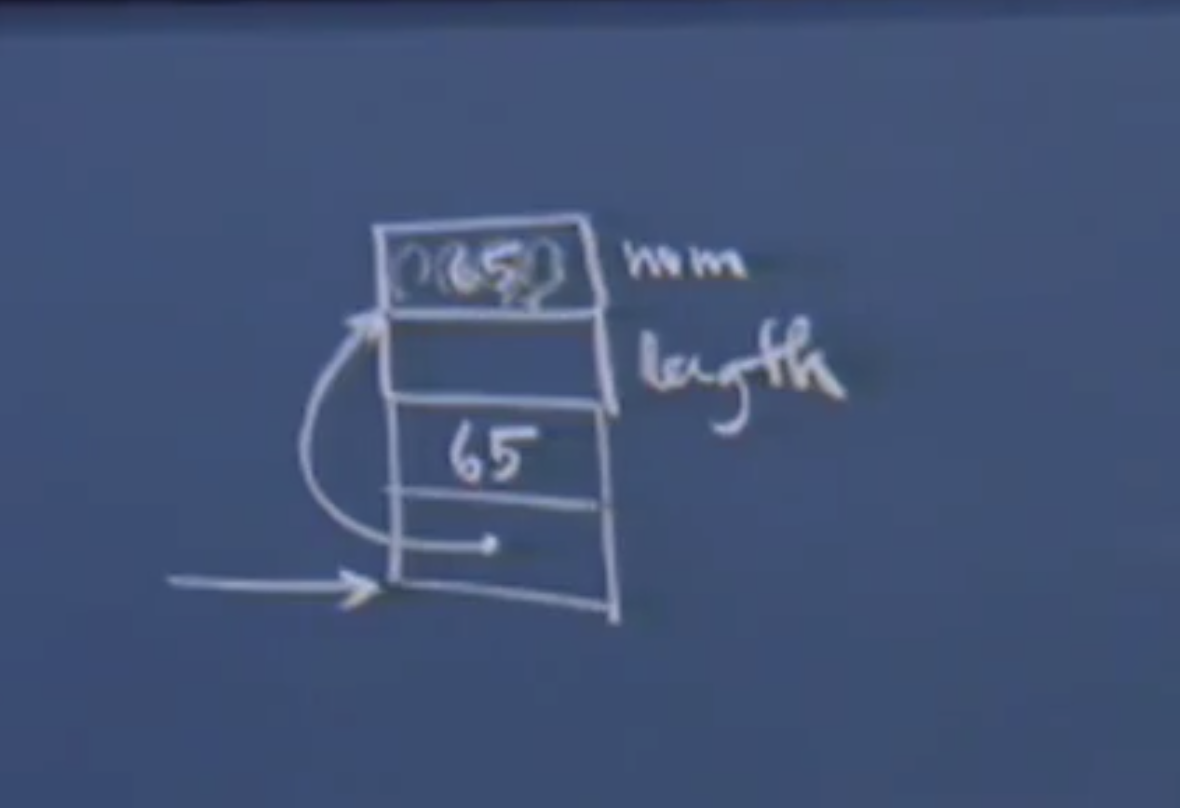 65 num
length
65